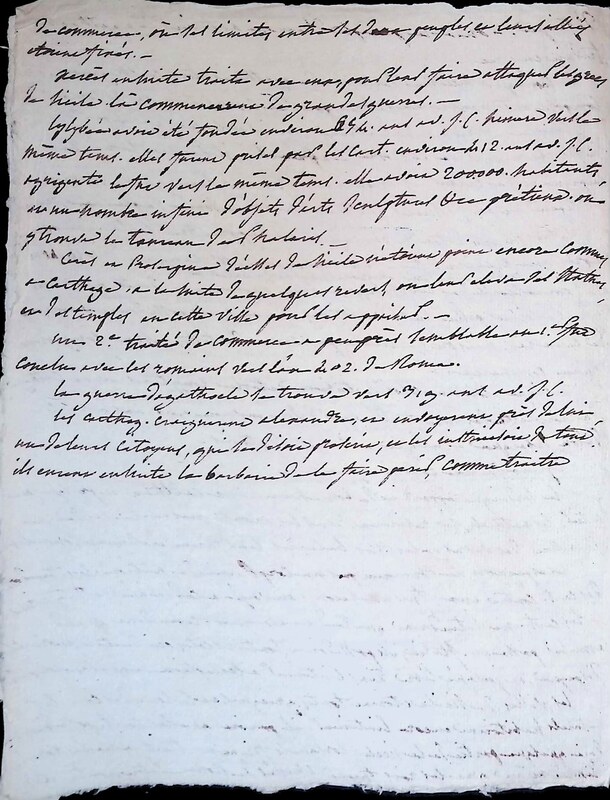 de commerce, où les limites entre les deux peuples et leurs alliés
étoient fixés. —
Xercès ensuite traite avec eux, pour leur faire attaquer les grecs
de Sicile. là commencèrent de grandes guerres. —
Lylybée avoit été fondée environ ans av. J. C. himere vers le
même tems. elles furent prises par les Cart. environ ans av. J. C.
agrigente le fut vers le même tems. elle avoit 200.000. habitants
et un nombre infini d'objets d'arts Sculptures &ca prétieux. on
y trouva le taureau de Phalaris. —
Cérès et Proserpine déesses de Sicile n'étoient point encore connues
à Carthage. à la suite de quelques revers, on leur éleva des Statues
et des temples en cette ville pour les appaiser. —
un 2.e traité de commerce à peu près semblable au 1.er fut
conclu avec les romains vers l'an 402. de Rome.
la guerre d'agathocle se trouve vers 319 ans av. J. C.
les Carthag. craignirent alexandre, et envoyèrent près de lui
un de leurs Citoyens, qui se disoit proscrit, et les instruisoit de tout.
ils eurent ensuite la barbarie de le faire périr, comme traître